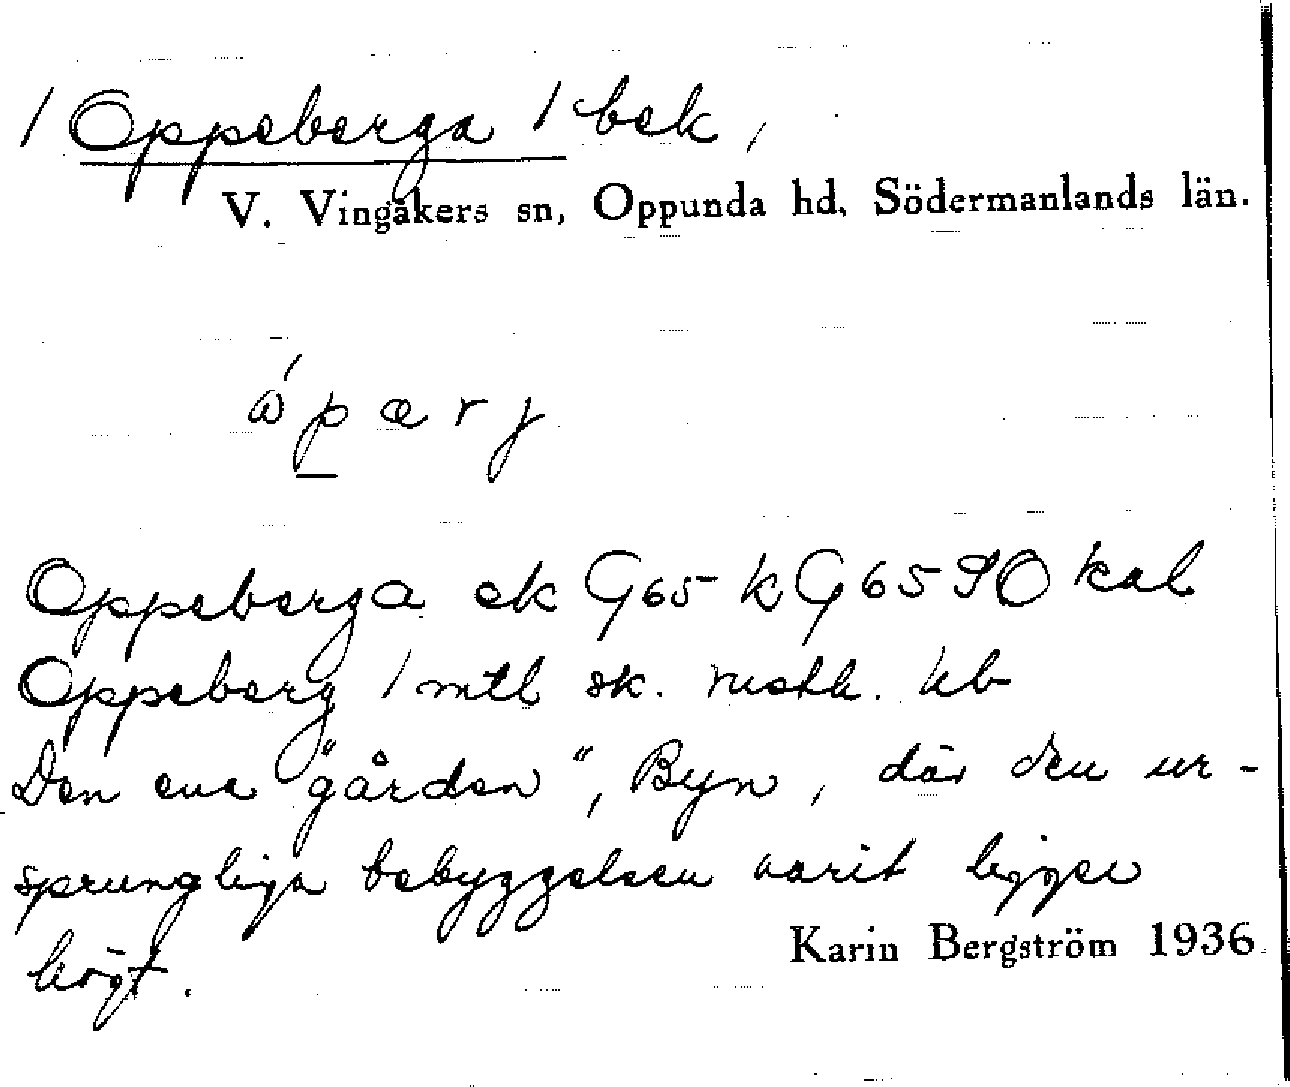 / Oppeberga / bek,
V. Vingåkers sn, Oppunda hd, Södermanlands län.
Oppeberga ek G65 k G65 SO kal
Oppeberg 1 mtl sk. rusth. kb
Den ena "gården", Byn, där den ur-
sprungliga bebyggelsen varit ligger
högt.
Karin Bergström 1936